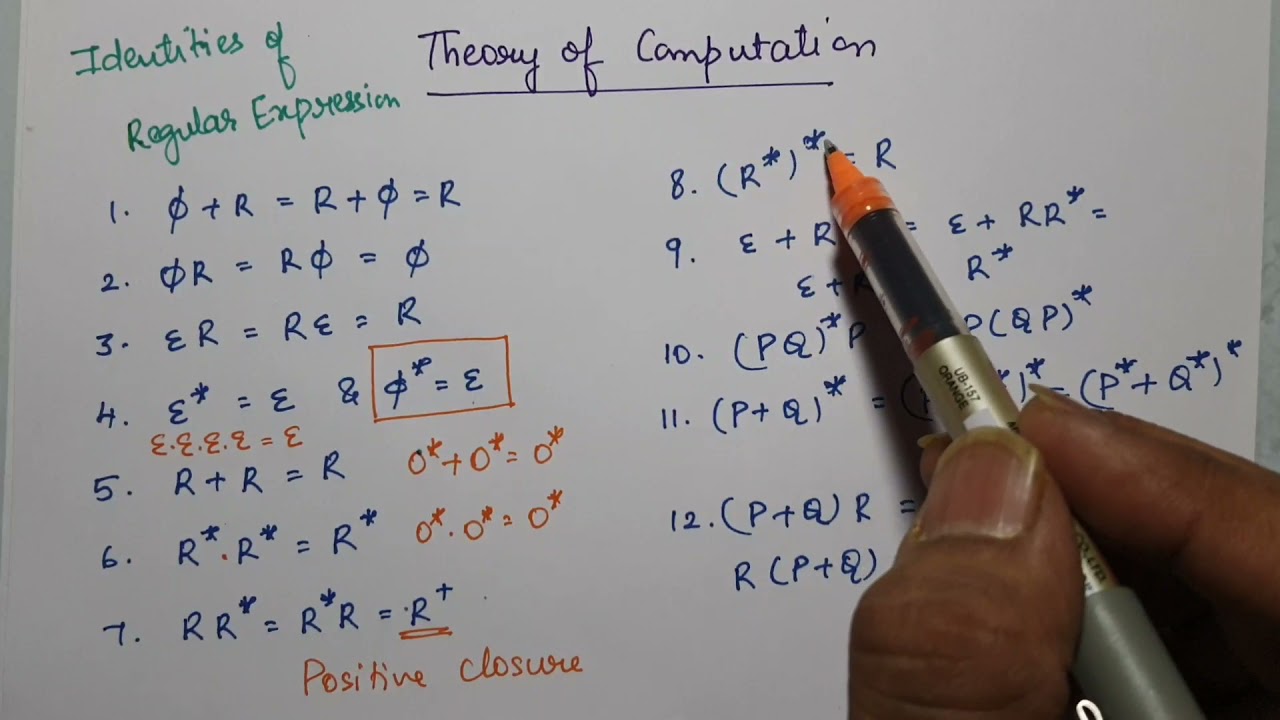 Identities of
Regular Expression
Theory of Computation
1. ϕ + R = R + ϕ = R
2. ϕR = Rϕ = ϕ
3. εR = Rε = R
4. ε* = ε & ϕ* = ε
ε.ε.ε.ε = ε
5. R + R = R 0* + 0* = 0*
6. R*.R* = R* 0*.0* = 0*
7. RR* = R*R = R+
Positive closure
8. (R*)* = R
9. ε + R = ε + RR* =
ε + R*
10. (PQ)*P P(QP)*
11. (P+Q)* = )* = (P* + Q*)*
12. (P+Q)R =
R(P+Q)
UB-157
ORANGE